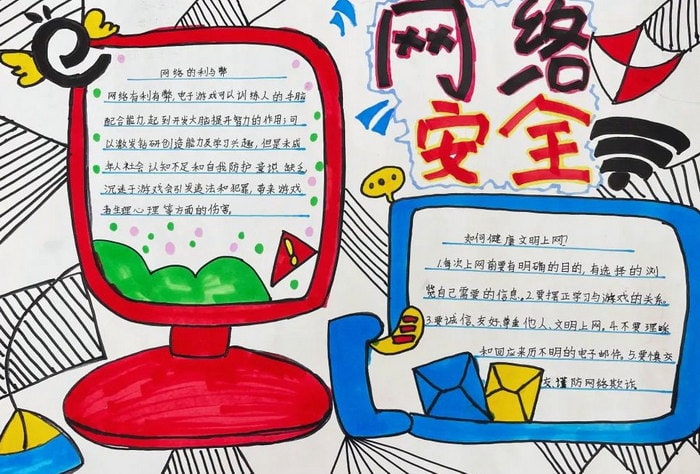 网络
安全
网络的利与弊
网络有利有弊,电子游戏可以训练人的手脑
配合能力,起到开发大脑提升智力的作用;可
以激发钻研创造能力及学习兴趣,但是未成
年人社会认知不足和自我防护意识缺乏,
沉迷于游戏会引发违法和犯罪,带来游戏
者生理心理等方面的伤害。
如何健康文明上网?
1.每次上网前要有明确的目的,有选择的浏
览自己需要的信息。2.要摆正学习与游戏的关系。
3.要诚信友好尊重他人、文明上网。4.不要理睬
和回应来历不明的电子邮件。5.要慎交
友,谨防网络欺诈。